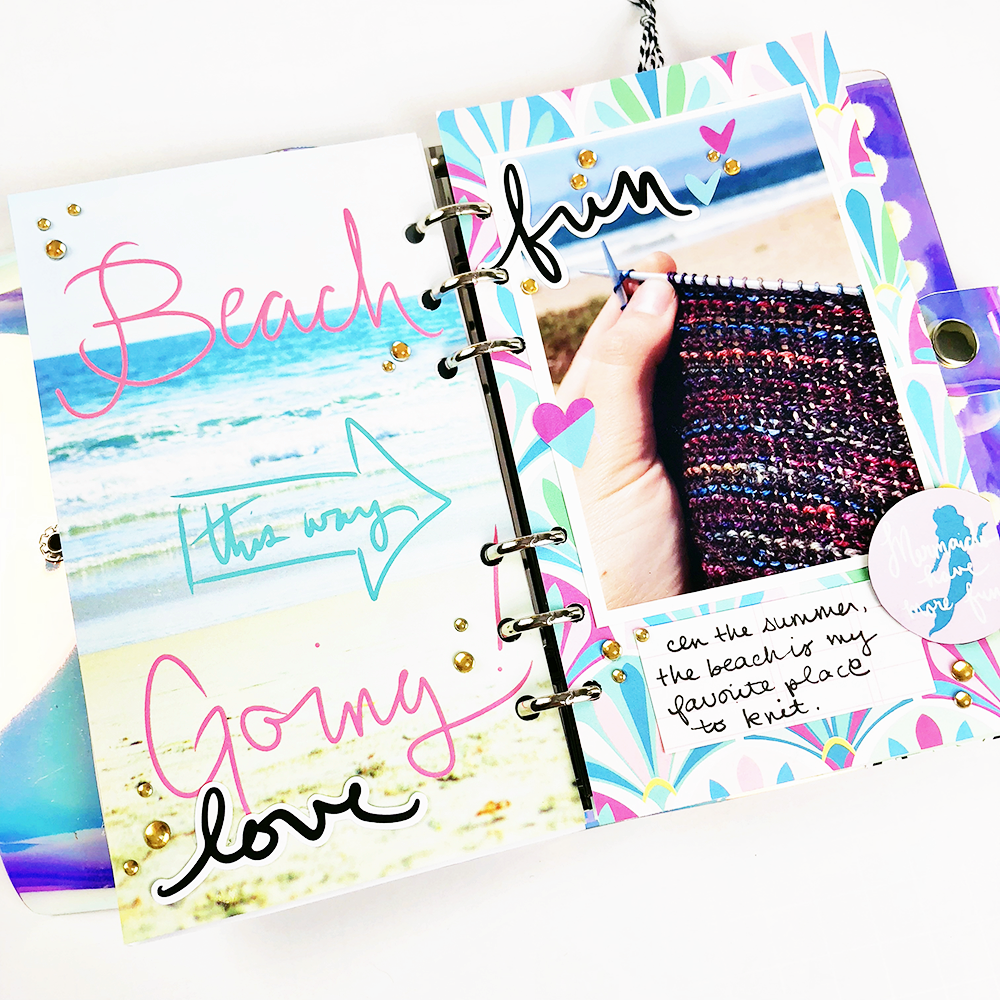 Beach
this way
Going!
love
fun
cen the summer,
the beach is my
favorite place
to knit.
Mermaids
have
more fun